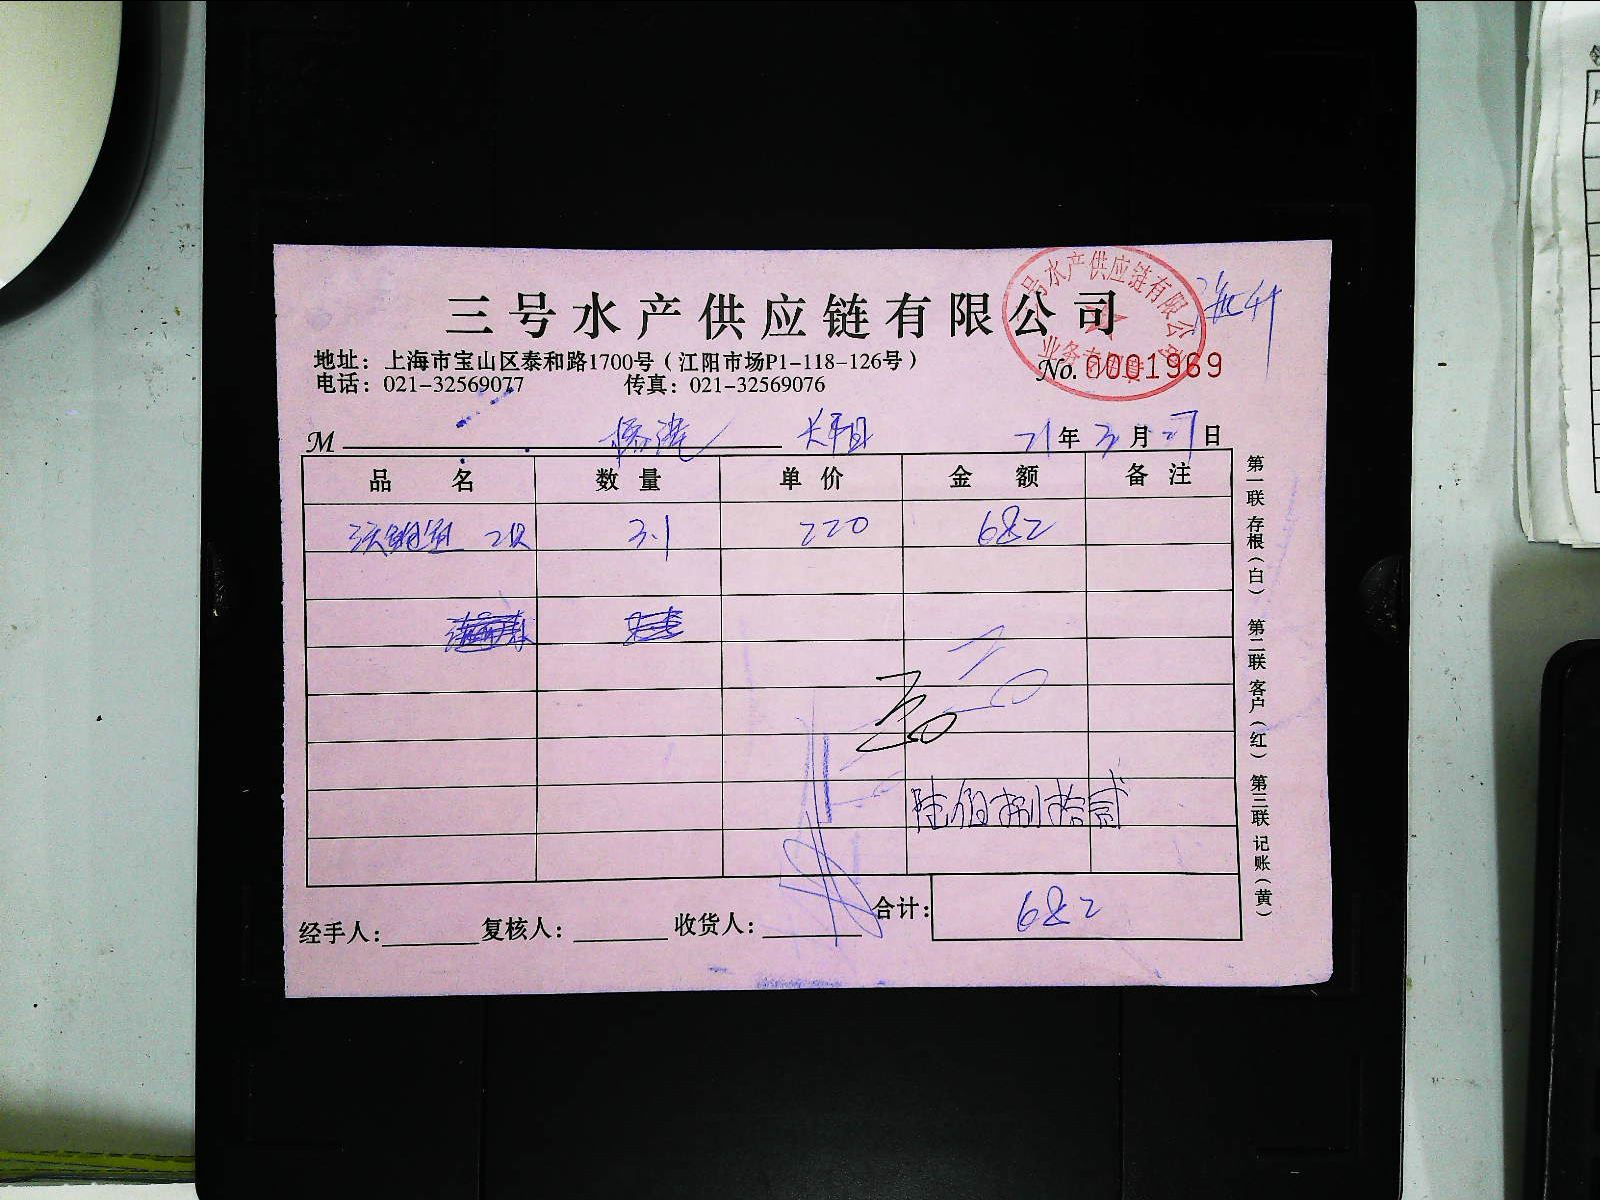 三号水产供应链有限公司
号水产供应链有限公
业务专
地址：上海市宝山区泰和路1700号（江阳市场P1-118-126号）
No. 0001969
电话：021-32569077 传真：021-32569076
M 21年 3月 日
品名 数量 单价 金额 备注
2只 3.1 220 682
陆佰捌拾贰
经手人： 复核人： 收货人： 合计： 682
第一联 存根（白） 第二联 客户（红） 第三联 记账（黄）